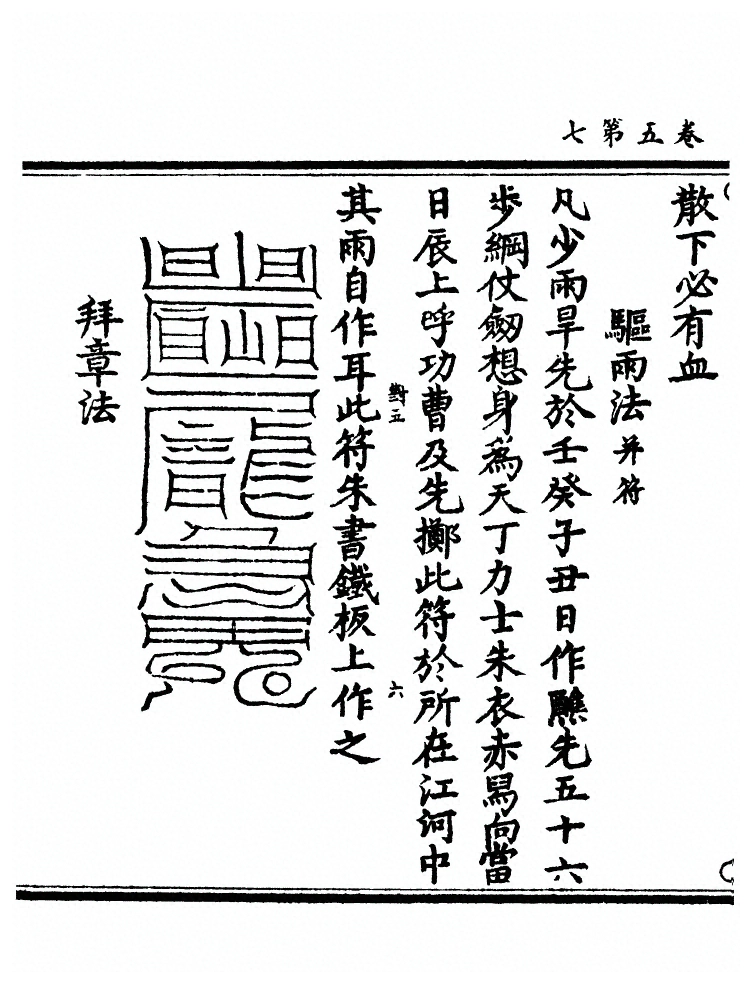 卷五第七
散下必有血
驅雨法并符
凡少雨旱先於壬癸子丑日作醮先五十六
步綱仗劔想身為天丁力士朱衣赤舄向當
日辰上呼功曹及先擲此符於所在江河中
其雨自作耳此符朱書鐵板上作之
對五
六
拜章法